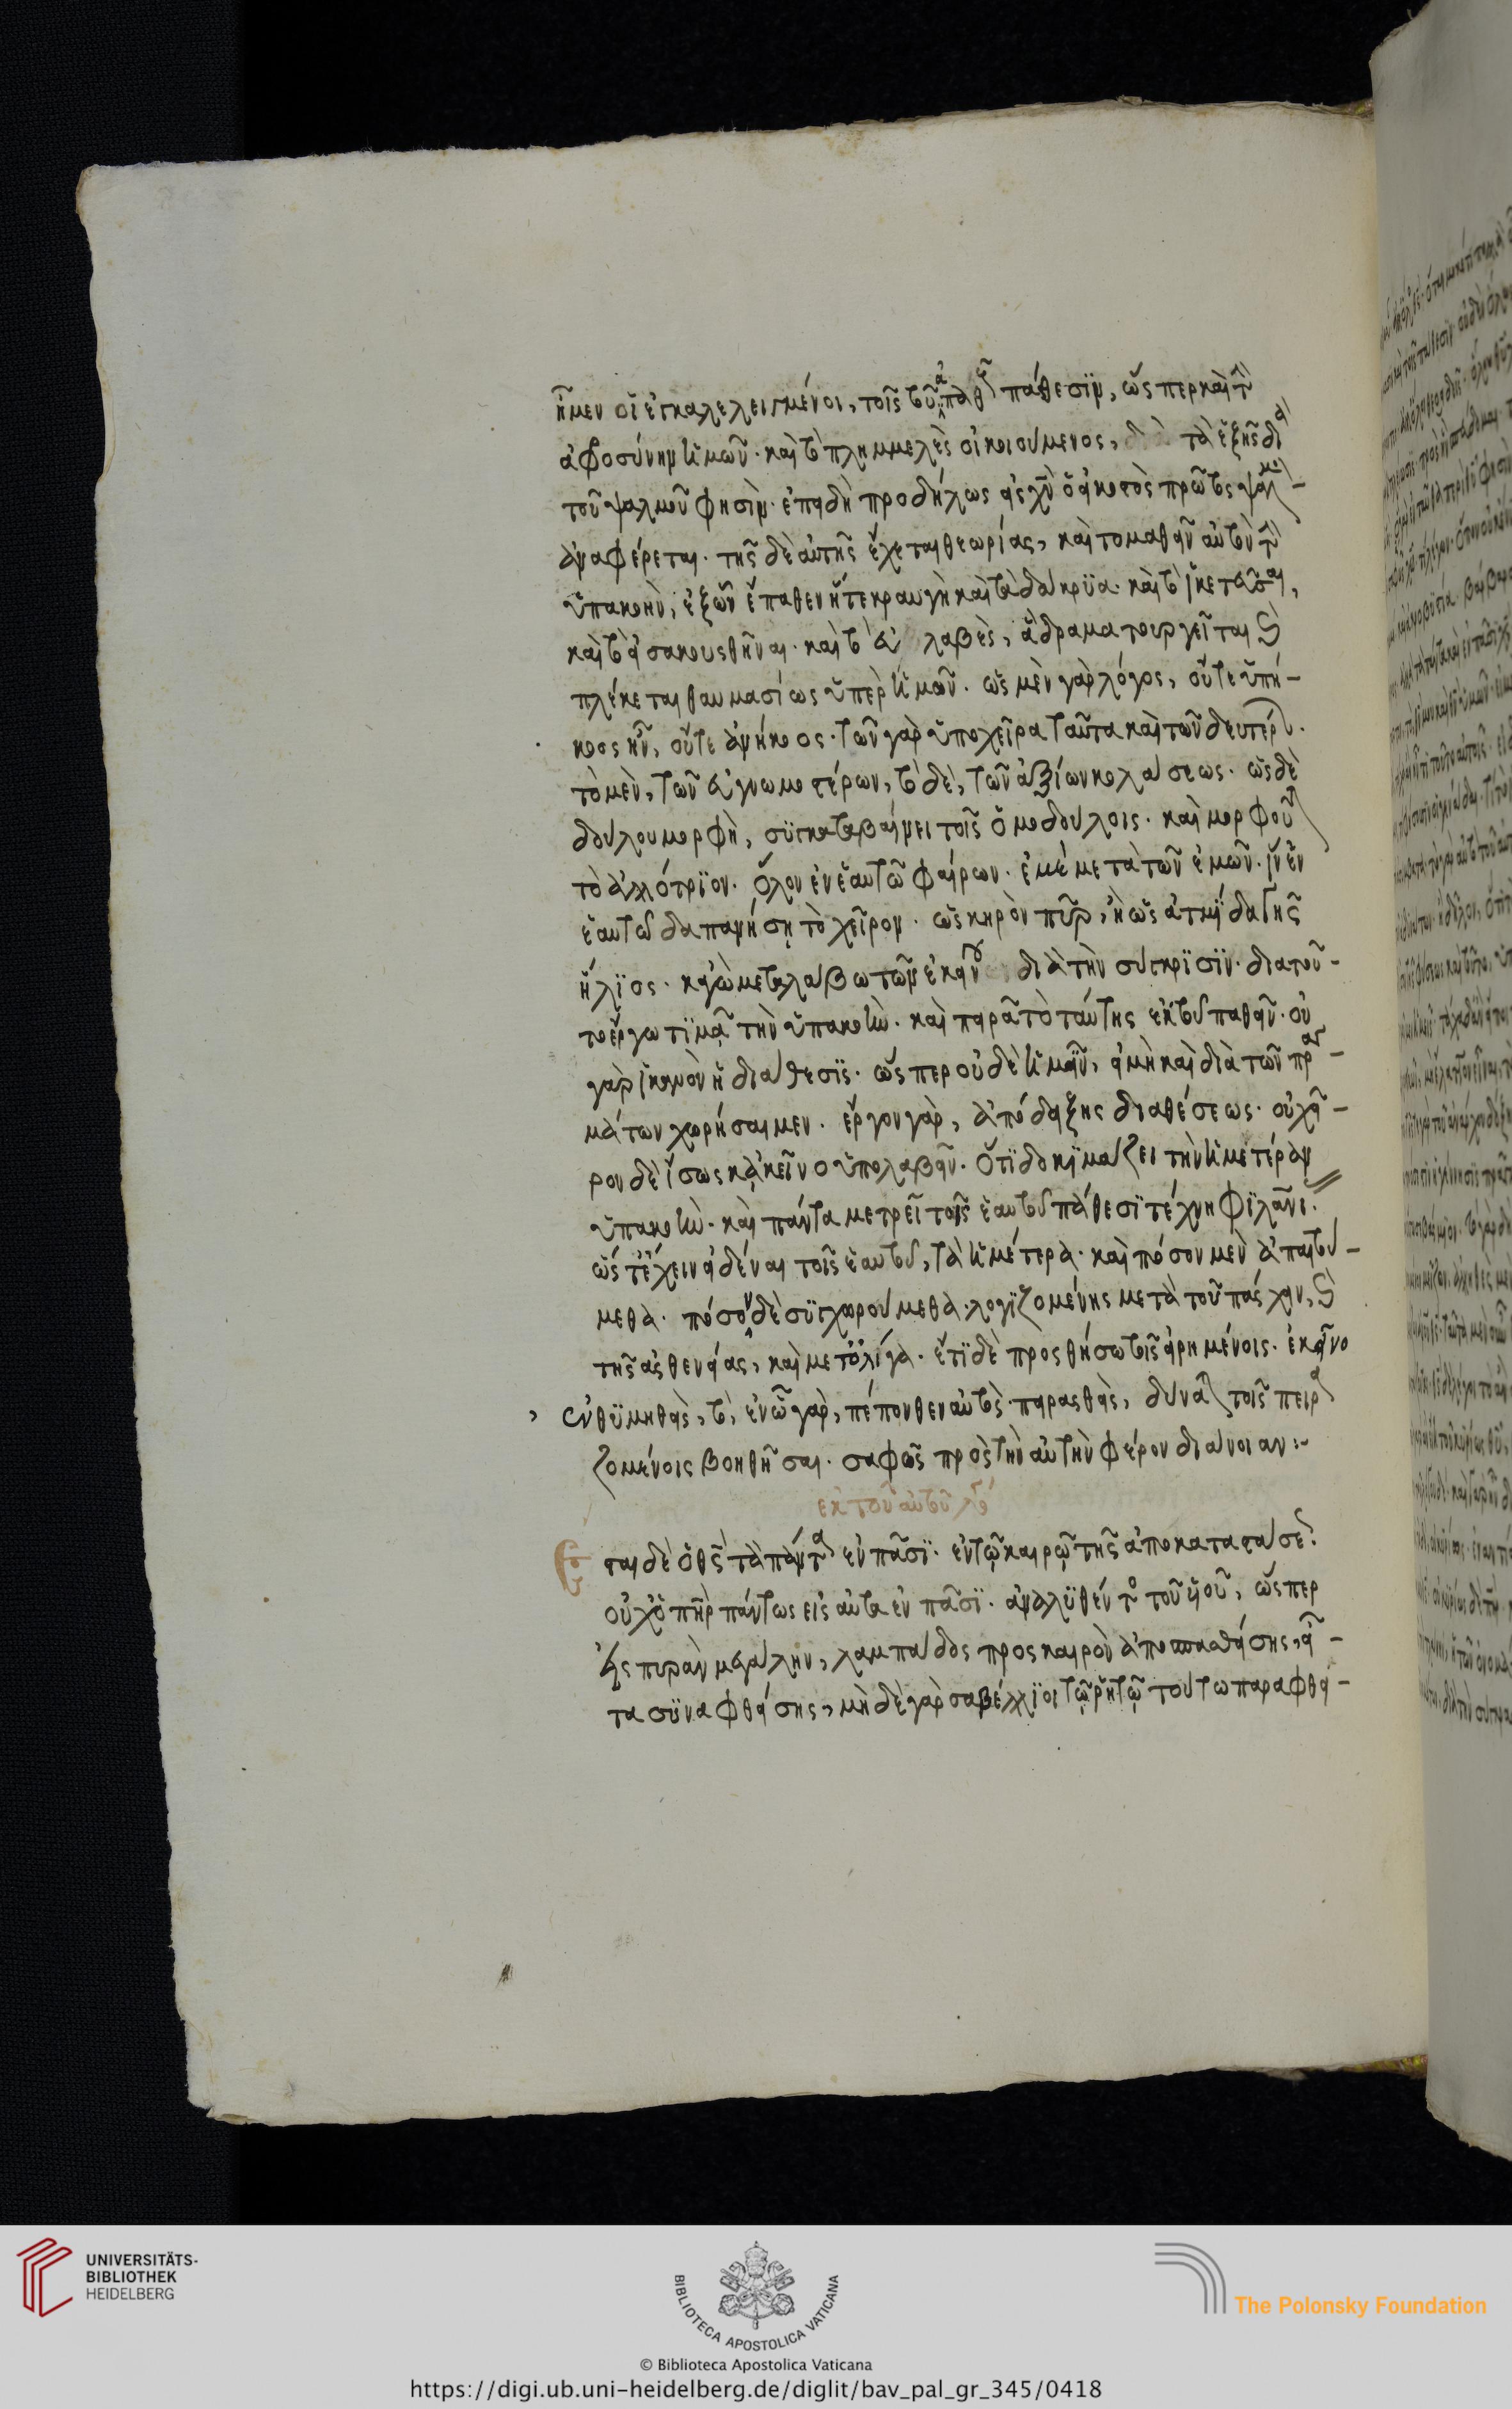 ἦμεν οἱ ἐγκαλελειμμένοι, τοῖς τοῦ ἀπαθοῦς πάθεσιν, ὥσπερ καὶ τὴν
ἀφροσύνην ἡμῶν· καὶ τὸ πλημμελὲς οἰκειούμενος, τὰ ἑξῆς διὰ
τοῦ ψαλμοῦ φησίν· ἐπειδὴ προδήλως εἰς χν ὁ εἰκοστὸς πρῶτος ψαλμὸς
ἀναφέρεται· τῆς δὲ αὐτῆς ἔχεται θεωρίας, καὶ τὸ μαθεῖν αὐτὸν τὴν
ὑπακοὴν, ἐξ ὧν ἔπαθεν ἥ τε κραυγὴ καὶ τὰ δάκρυα· καὶ τὸ ἱκετεῦσαι,
καὶ τὸ εἰσακουσθῆναι· καὶ τὸ εὐλαβὲς, ἃ δραματουργεῖται καὶ
πλέκεται θαυμασίως ὑπὲρ ἡμῶν. ὡς μὲν γὰρ λόγος, οὔτε ὑπή-
κοος ἦν, οὔτε ἀνήκοος· τῶν γὰρ ὑπὸ χεῖρα ταῦτα καὶ τῶν δευτέρων·
τὸ μὲν, τῶν εὐγνωμοστέρων, τὸ δὲ, τῶν ἀξίων κολάσεως· ὡς δὲ
δούλου μορφὴ, συγκαταβαίνει τοῖς ὁμοδούλοις· καὶ μορφοῦται
τὸ ἀλλότριον· ὅλον ἐν ἑαυτῷ φαίρων· ἐμὲ μετὰ τῶν ἐμῶν· ἵν' ἐν
ἑαυτῷ δαπανήσῃ τὸ χεῖρον· ὡς κηρὸν πῦρ, ἢ ὡς ἀτμίδα γῆς
ἥλιος· καγὼ μεταλάβω τῶν ἐκείνου διὰ τὴν σύγκρισιν· διὰ τοῦ-
το ἔργω τιμᾷ τὴν ὑπακοὴν· καὶ πειρᾶται ταύτης ἐκ τοῦ παθεῖν· οὐ
γὰρ ἱκανὸν ἡ διάθεσις· ὥσπερ οὐδὲ ἡμῖν, εἰ μὴ καὶ διὰ τῶν πραγ-
μάτων χωρήσαιμεν· ἔργον γὰρ, ἀπόδειξης διαθέσεως· οὐ χεῖ-
ρον δὲ ἴσως κἀκεῖνο ὑπολαβεῖν· ὅτι δοκιμάζει τὴν ἡμετέραν
ὑπακοὴν· καὶ πάντα μετρεῖ τοῖς ἑαυτοῦ πάθεσι τέχνη φιλανίας·
ὥστ' ἔχειν εἰδέναι τοῖς ἑαυτοῦ, τὰ ἡμέτερα· καὶ πόσον μὲν ἀπαιτού-
μεθα· πόσον δὲ συγχωρούμεθα· λογιζομένης μετὰ τοῦ πάσχειν, καὶ
τῆς ἀσθενείας, καὶ μετ' ὀλίγα· ἔτι δὲ προσθήσω τοῖς εἰρημένοις· ἐκεῖνο
ἐνθυμηθεὶς, τὸ, ἐν ᾧ γὰρ, πέπονθεν αὐτὸς πειρασθεὶς, δύναται τοῖς πειρα
ζομένοις βοηθῆσαι· σαφῶς πρὸς τὴν αὐτὴν φέρον διάνοιαν:-
ἐκ τοῦ αὐτοῦ λόγου
Ἔσται δὲ ὁ θς τὰ πάντα ἐν πᾶσι· ἐν τῷ καιρῷ τῆς ἀποκαταστάσεως·
οὐχ ὁ πηρ πάντως εἰς αὐτα ἐν πᾶσι· ἀναλυθέντος τοῦ υἱοῦ, ὥσπερ
εἰς πυρὰν μεγάλην, λαμπάδος πρὸς καιρὸν ἀποσπασθείσης, εἶ-
τα συναφθείσης, μηδὲ γὰρ σαβέλλιοι τῷ ῥητῷ τούτω παραφθει-
UNIVERSITÄTS-
BIBLIOTHEK
HEIDELBERG
BIBLIOTECA APOSTOLICA VATICANA
The Polonsky Foundation
© Biblioteca Apostolica Vaticana
https://digi.ub.uni-heidelberg.de/diglit/bav_pal_gr_345/0418